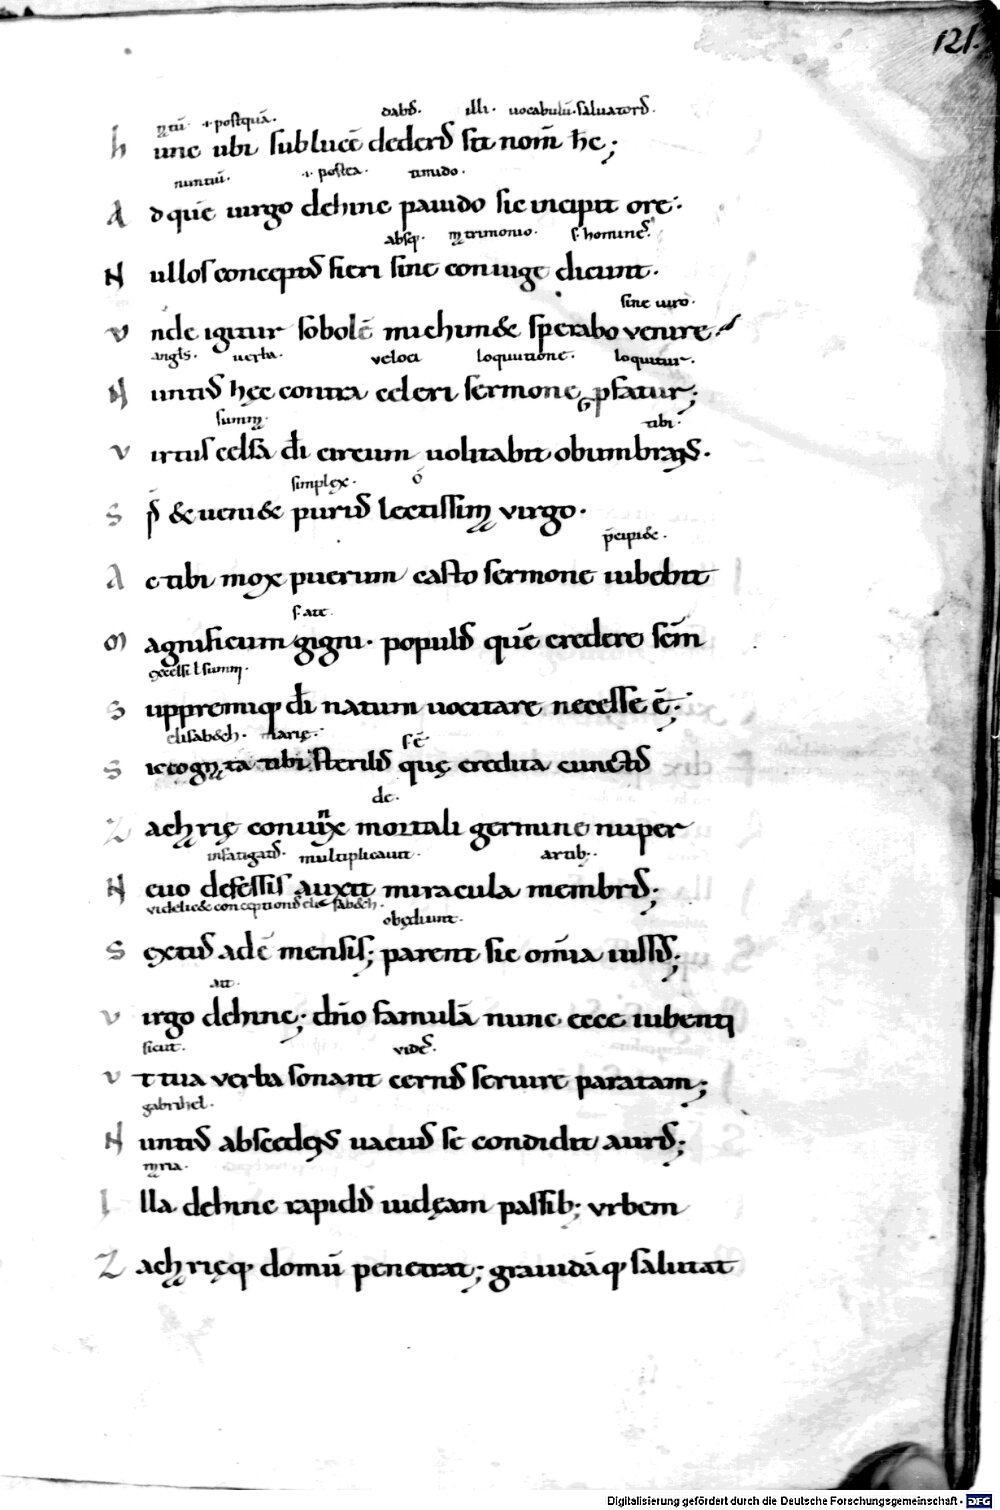 121.
natū ⁊ postquā. dabis. illi. uocabulū. saluatoris.
Hunc ubi sub lucē dederis sit nom̄ ih̄c;
nuntiū. ⁊ postea. timido.
Ad quē uirgo dehinc pauido sic incipit ore.
absq. matrimonio. s. homines.
Nullos conceptus fieri sine coniuge dicunt.
sine uiro.
Vnde igitur sobolē mihimet sperabo venire.
angls. uerba. veloci loquutione. loquitur.
Nuntius hęc contra celeri sermone pfatur;
summa. tibi.
Virtus celsa dī circum uolitabit obumbrans.
simplex. ó
Sp̄s & ueniet purus lectissima virgo.
p̄cipiet.
Ac tibi mox puerum casto sermone iubebit
s. ait.
Magnificum gigni. populus quē credere sēm
excelsi l summi.
Suppremiq dī natum uocitare necesse ē;
elisabeth. marię. sē
Sic cognata tibi sterilis quę credita cunctis
de.
Zacharię coniunx mortali germine nuper
infatigatis. multiplicauit. artib;
Nec uo defessis auxit miracula membris;
videlicet conceptionis elisabeth.
obędiunt.
Sextus adē mensis; parent sic om̄ia iussis;
ait.
Virgo dehinc; dn̄o famulā nunc ecce iubenti
sicut. vides.
Vt tua verba sonant cernis seruire paratam;
gabrihel.
Nuntius abscedens uacuis se condidit auris;
maria.
Illa dehinc rapidis iudęam passib; vrbem
Zacharięq domū penetrat; grauidāq salutat
Digitalisierung gefördert durch die Deutsche Forschungsgemeinschaft - DFG